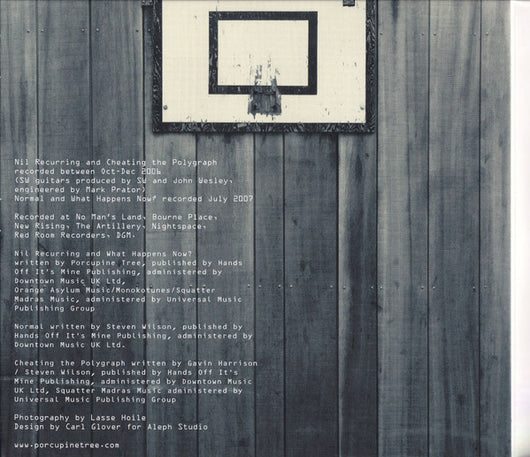 Nil Recurring and Cheating the Polygraph
recorded between Oct-Dec 2006
(SW guitars produced by SW and John Wesley,
engineered by Mark Prator)
Normal and What Happens Now? recorded July 2007
Recorded at No Man's Land, Bourne Place,
New Rising, The Artillery, Nightspace,
Red Room Recorders, DGM.
Nil Recurring and What Happens Now?
written by Porcupine Tree, published by Hands
Off It's Mine Publishing, administered by
Downtown Music UK Ltd,
Orange Asylum Music/Monokotunes/Squatter
Madras Music, administered by Universal Music
Publishing Group
Normal written by Steven Wilson, published by
Hands Off It's Mine Publishing, administered by
Downtown Music UK Ltd.
Cheating the Polygraph written by Gavin Harrison
/ Steven Wilson, published by Hands Off It's
Mine Publishing, administered by Downtown Music
UK Ltd, Squatter Madras Music administered by
Universal Music Publishing Group
Photography by Lasse Hoile
Design by Carl Glover for Aleph Studio
www.porcupinetree.com